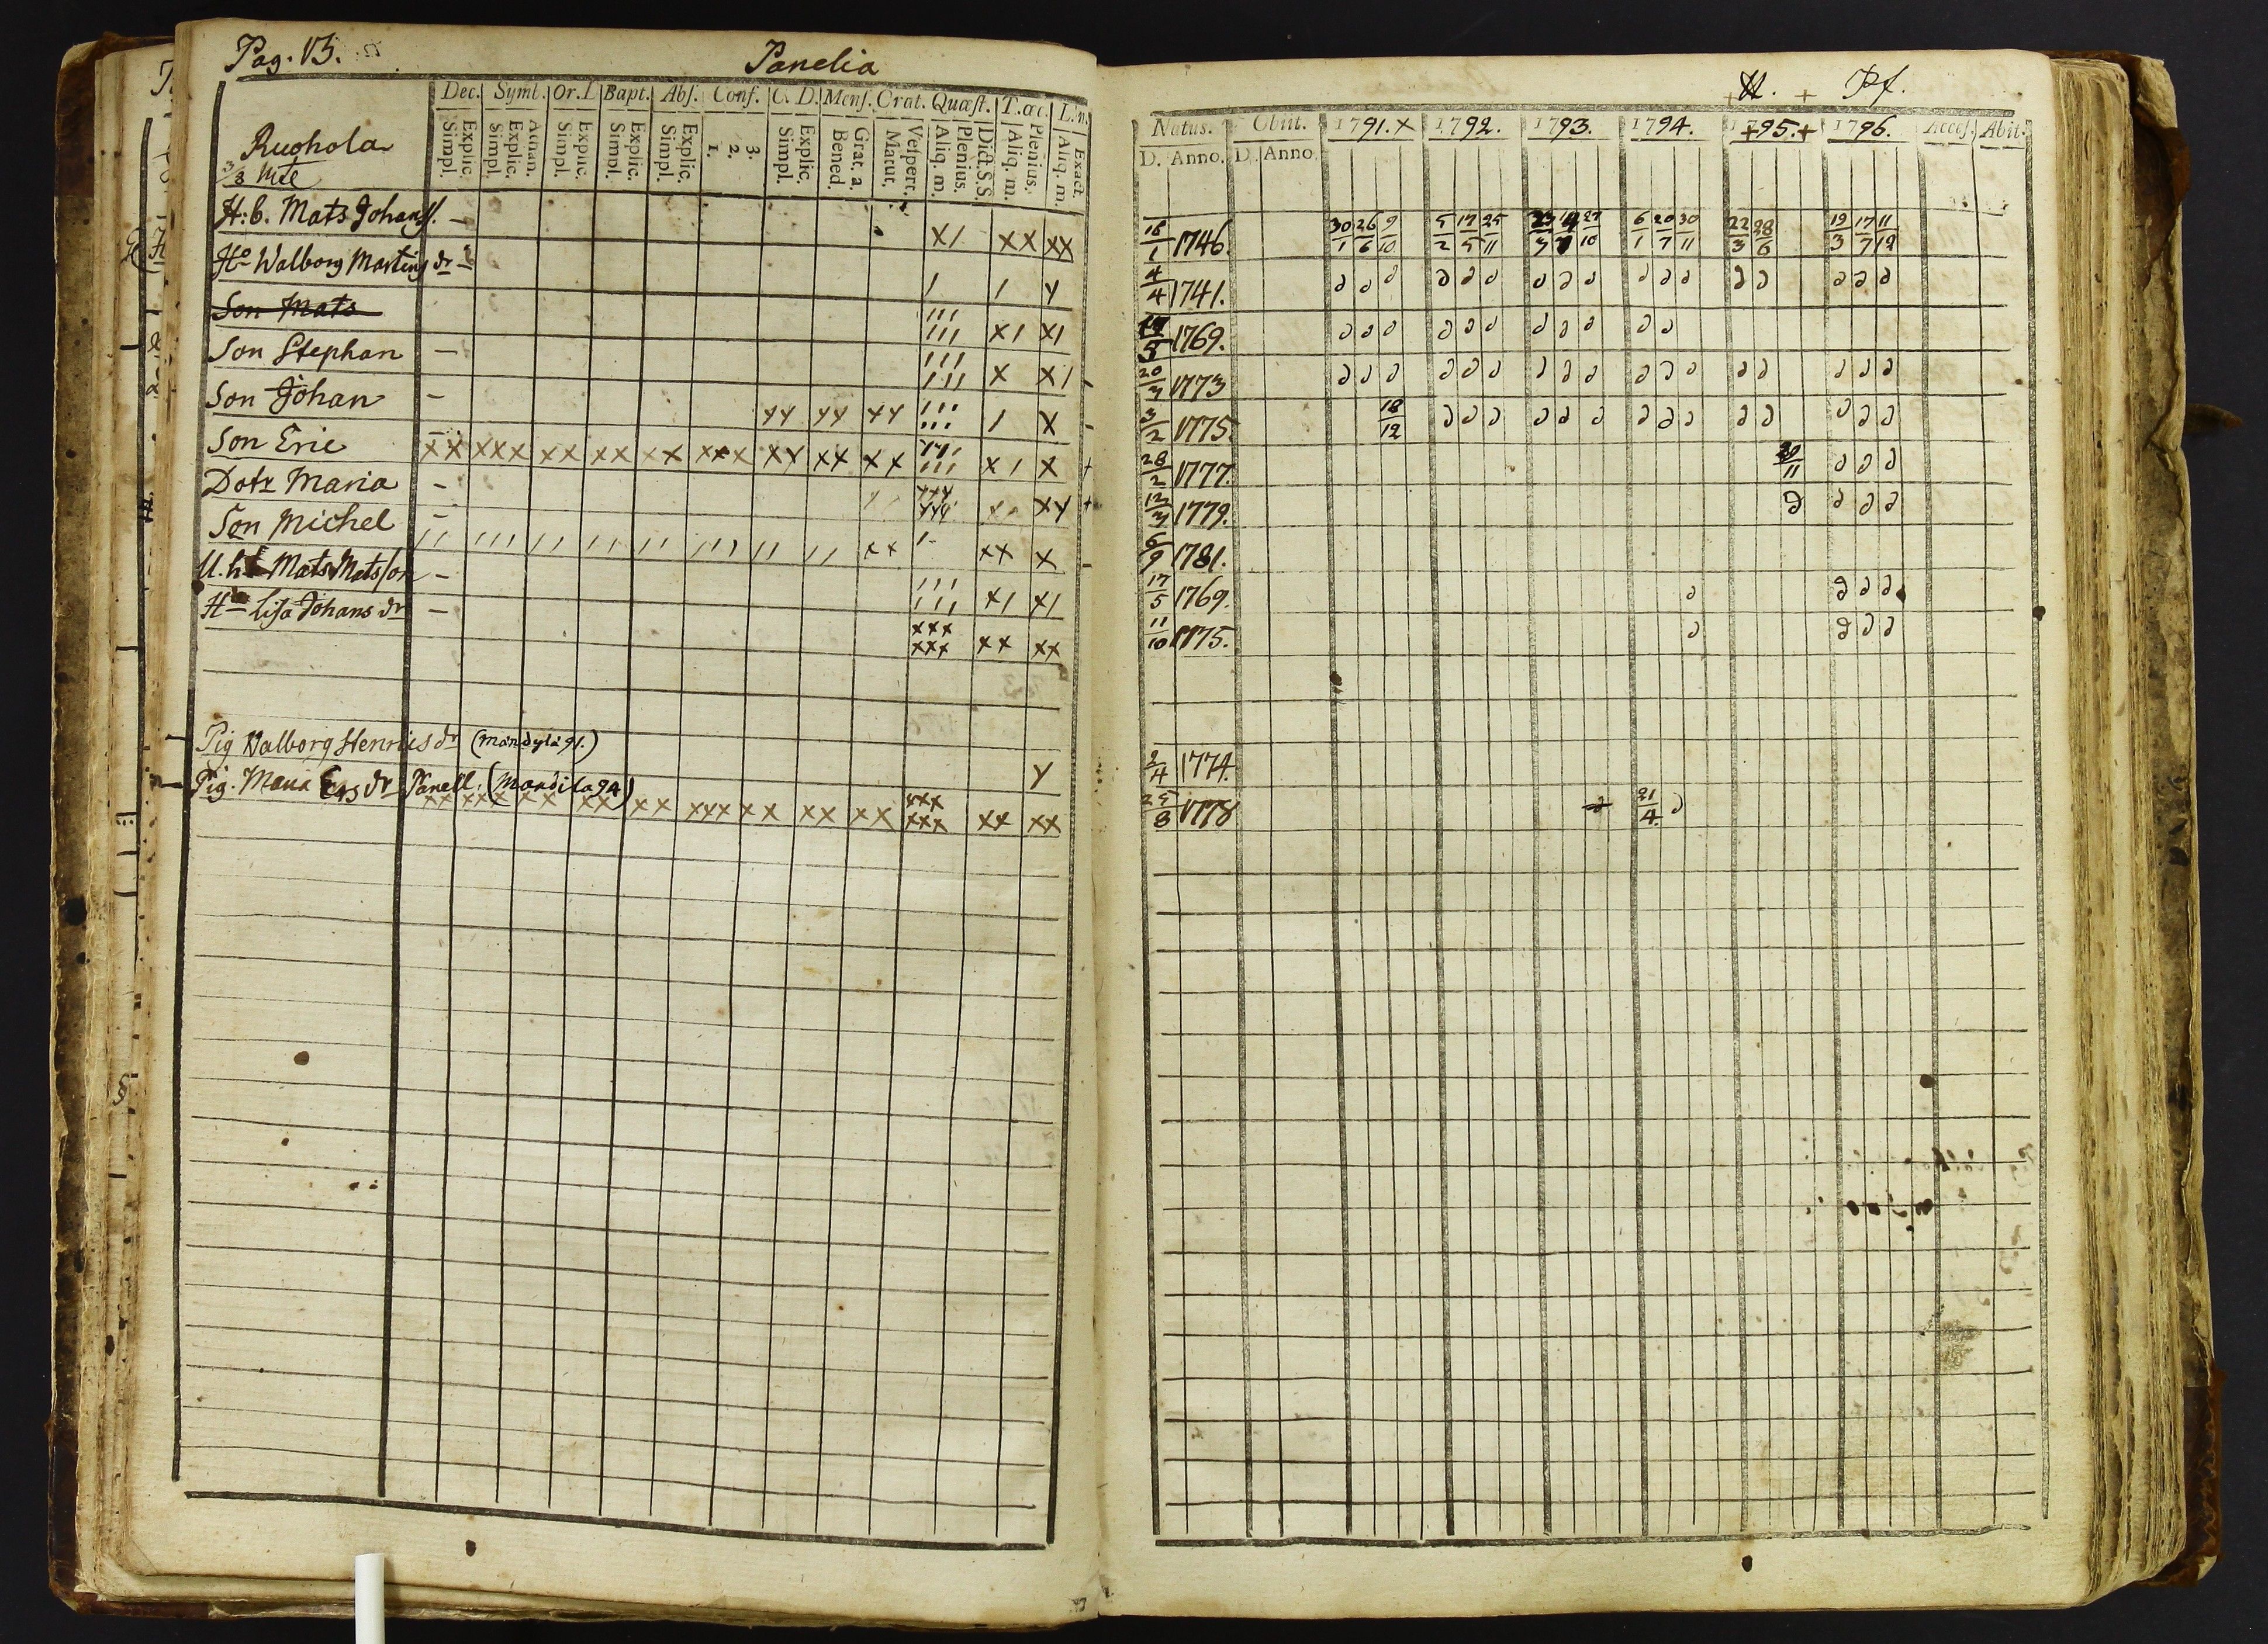 Pag. 13. Panelia
Dec. Symb. Or. D Bapt. Abs. Conf. C. D. Mens. Orat. Quæst. T. œc. L. n.
Explic. Simpl. Athan. Explic. Simpl. Explic. Simpl. Explic. Simpl. Explic. Simpl. 3. 2. 1. Explic. Simpl. Grat. a. Bened. Vespert. Matut. Dict. S.S. Plenius. Aliq. m. Plenius. Aliq. m. Exact. Aliq. m.
Ruohola
H:b. Mats Johanss.
Ho Walborg Martins dr
Son Mats
Son Stephan
Son Johan
Son Eric
Dotr Maria
Son Michel
Mats Matsson
Lisa Johans dr
Pig Walborg Henrics dr (Mandyla 91.)
Pig. Maria Ers dr Panell. (Mandila 94)
H. Pf.
Natus. Obiit. 1791. x 1792. 1793. 1794. +795.+ 1796. Acces. Abit.
D. Anno. D. Anno.
16/1 1746. 30/1 26/6 9/10 5/2 17/5 25/11 27/10 6/1 20/7 30/11 22/3 28/6 19/3 17/7 11/12
4/4 1741.
1769.
20/3 1773
3/2 1775. 18/12
28/2 1777. 20/11
12/3 1779.
6/9 1781.
17/5 1769.
11/10 1775.
2/4 1774.
25/3 1778 21/4.